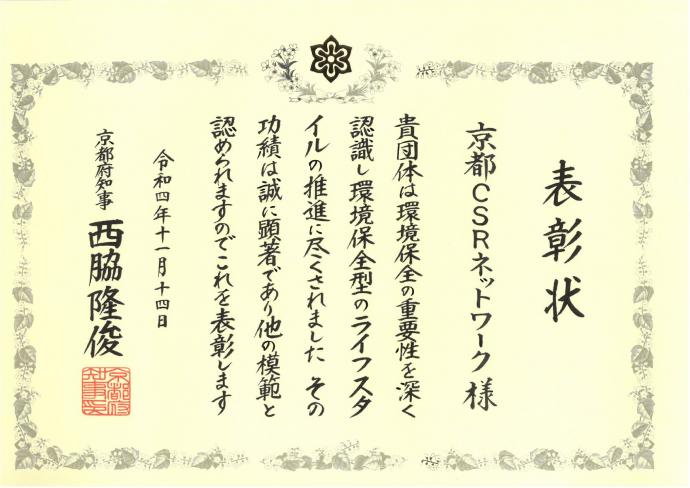 表彰状
京都CSRネットワーク 様
貴団体は環境保全の重要性を深く
認識し環境保全型のライフスタ
イルの推進に尽くされました その
功績は誠に顕著であり他の模範と
認められますのでこれを表彰します
令和四年十一月十四日
京都府知事 西脇隆俊
京都府
知事印